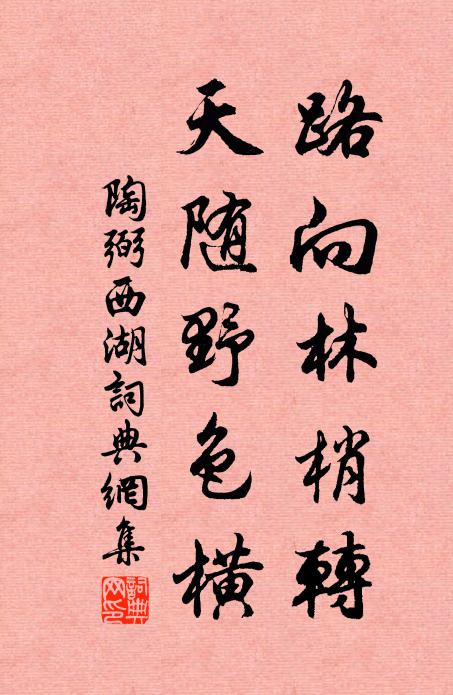 路向林梢轉
天随野色橫
陶弼西湖詞典網集